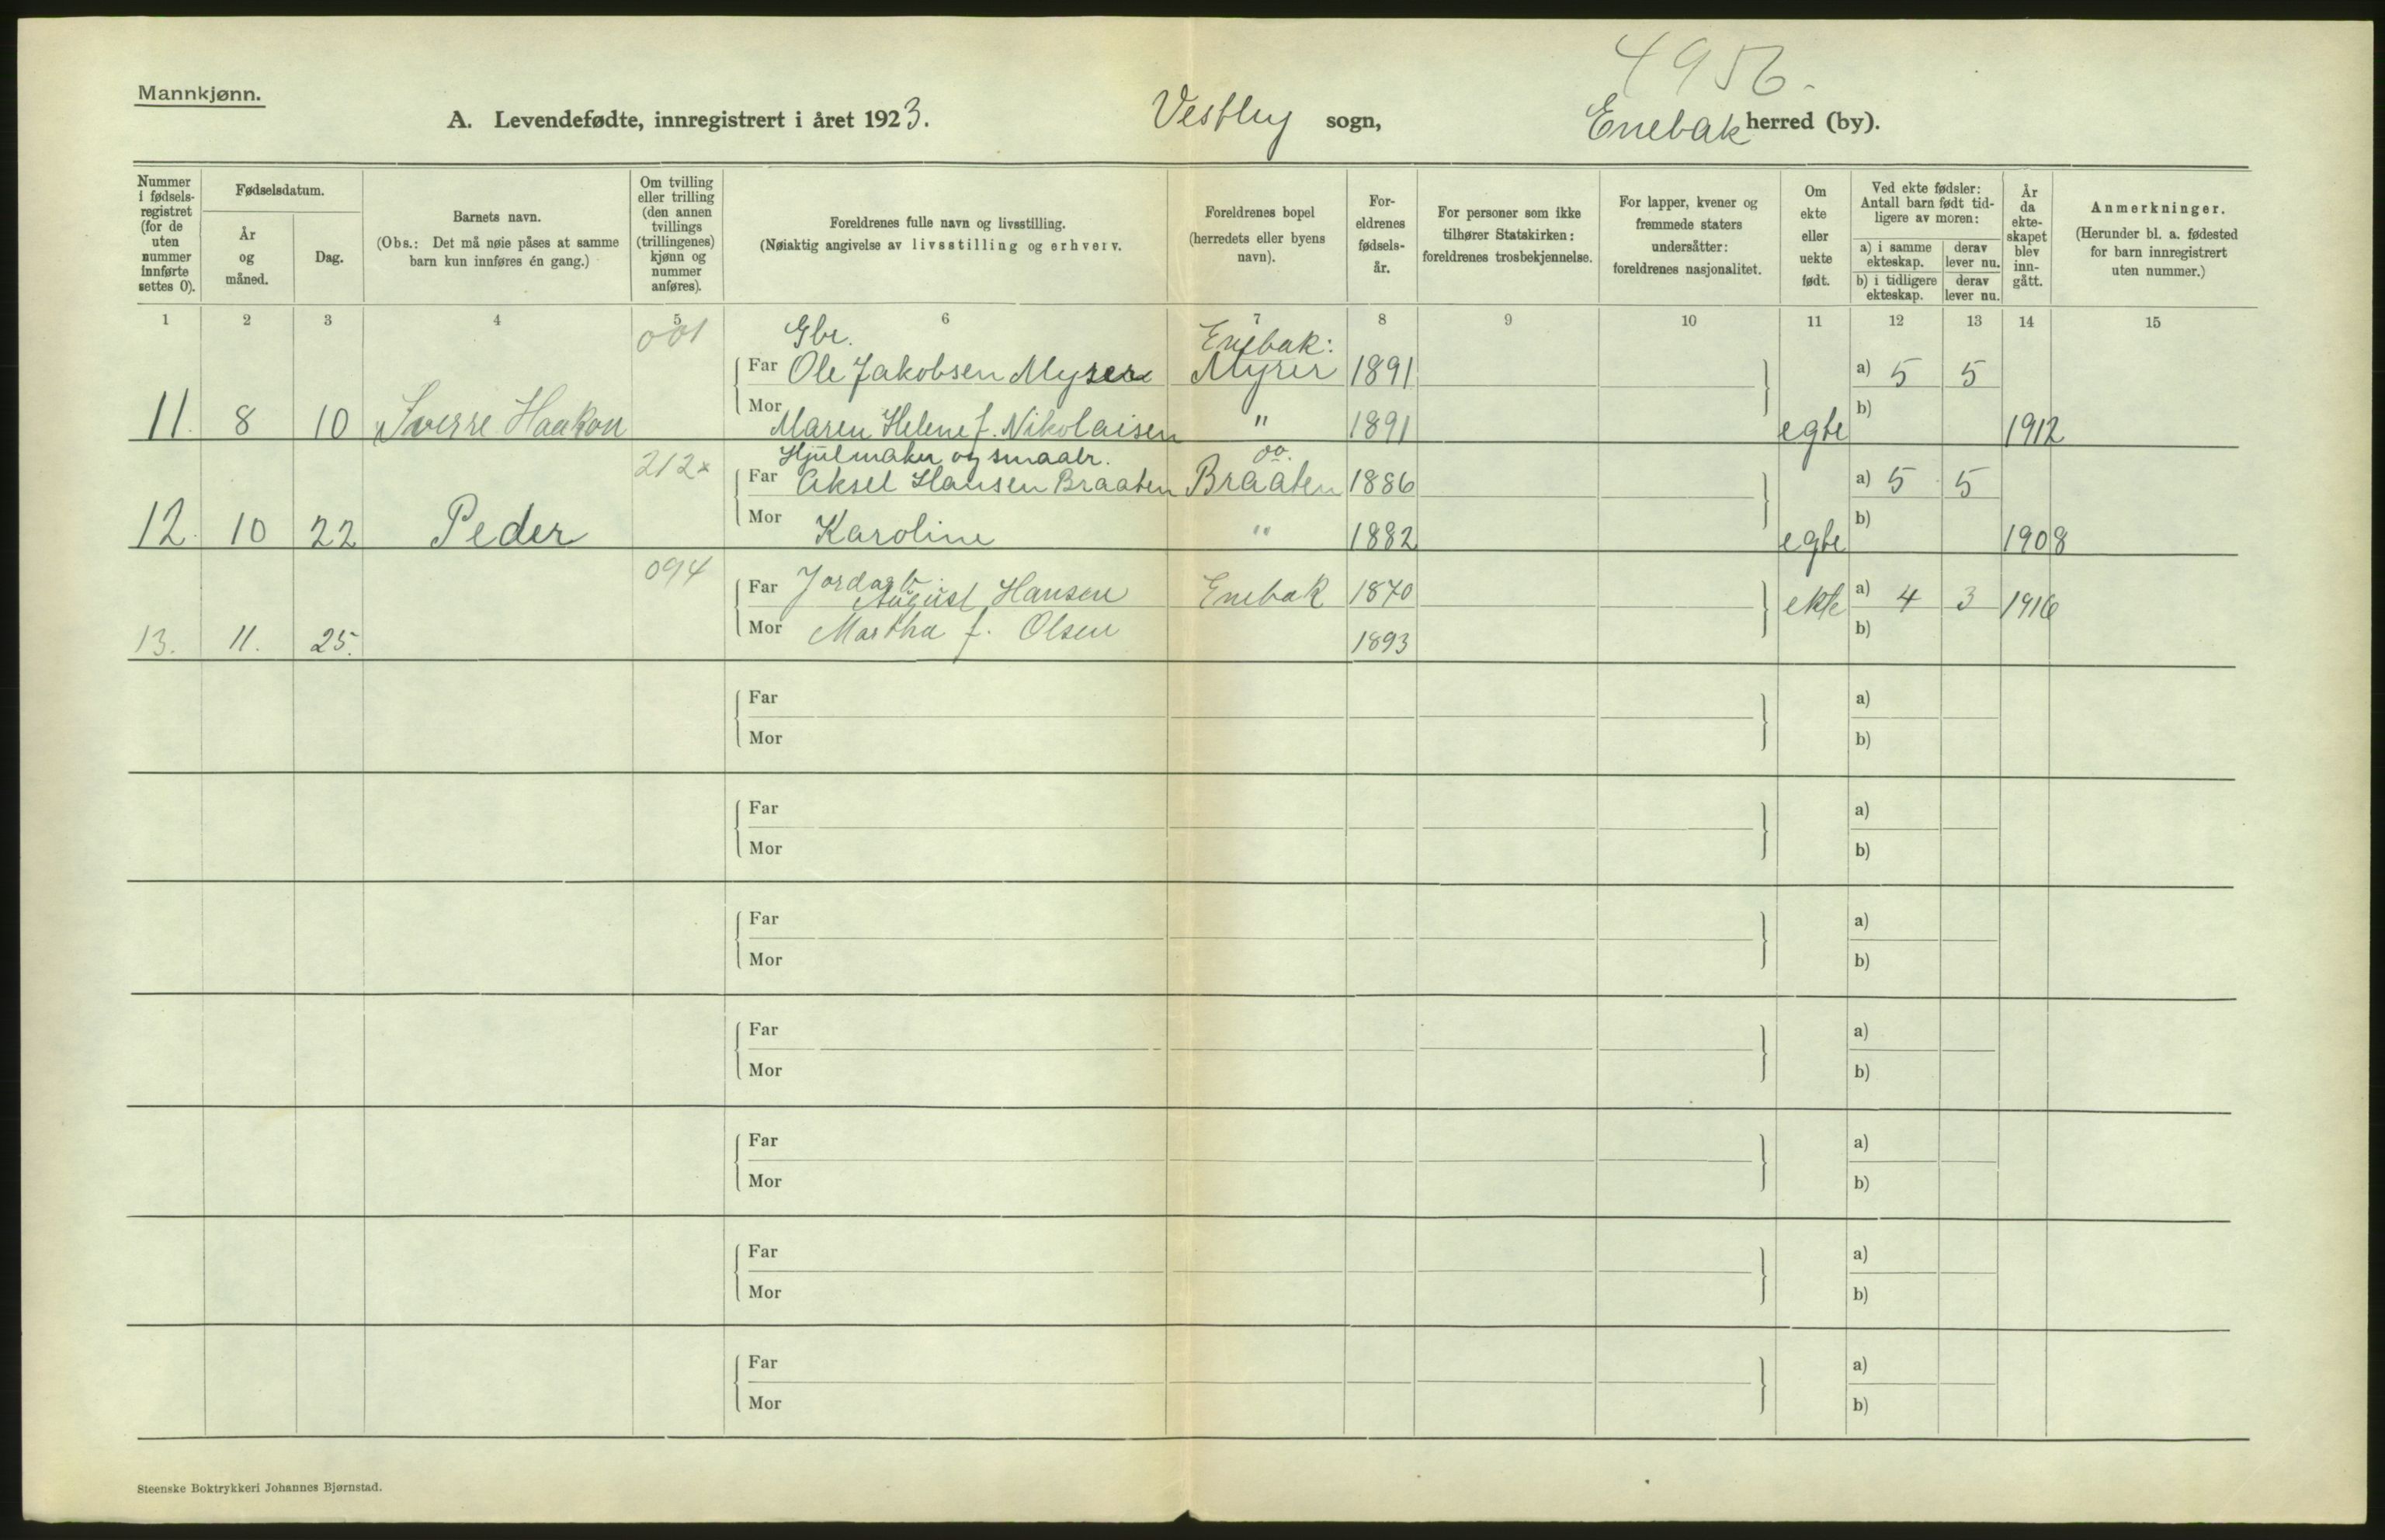 4956.
Mannkjønn.
A. Levendefødte, innregistrert i året 1923. Vestby sogn, Enebak herred (by).
Nummer i fødselsregistret (for de uten nummer innførte settes 0).
Fødselsdatum.
År og måned.
Dag.
Barnets navn.
(Obs.: Det må nøie påses at samme barn kun innføres én gang.)
Om tvilling eller trilling (den annen tvillings (trillingenes) kjønn og nummer anføres).
Foreldrenes fulle navn og livsstilling.
(Nøiaktig angivelse av livsstilling og erhverv.
Foreldrenes bopel (herredets eller byens navn).
Foreldrenes fødselsår.
For personer som ikke tilhører Statskirken: foreldrenes trosbekjennelse.
For lapper, kvener og fremmede staters undersåtter: foreldrenes nasjonalitet.
Om ekte eller uekte født.
Ved ekte fødsler: Antall barn født tidligere av moren:
a) i samme ekteskap. derav lever nu.
b) i tidligere ekteskap. derav lever nu.
År da ekteskapet blev inngått.
Anmerkninger.
(Herunder bl. a. fødested for barn innregistrert uten nummer.)
1 2 3 4 5 6 7 8 9 10 11 12 13 14 15
001 Gbr. Enebak:
Far Ole Jakobsen Myrer Myrer 1891 a) 5 5
11. 8 10 Sverre Haakon Mor Maren Helene f. Nikolaisen " 1891 egte b) 1912
212x Hjulmaker og smaabr. oo.
Far Aksel Hansen Braaten Braaten 1886 a) 5 5
12. 10 22 Peder Mor Karoline " 1882 egte b) 1908
094 Far Jordarb. August Hansen Enebak 1870 ekte a) 4 3 1916
13. 11. 25. Mor Martha f. Olsen 1893 b)
Far a)
Mor b)
Far a)
Mor b)
Far a)
Mor b)
Far a)
Mor b)
Far a)
Mor b)
Far a)
Mor b)
Far a)
Mor b)
Steenske Boktrykkeri Johannes Bjørnstad.